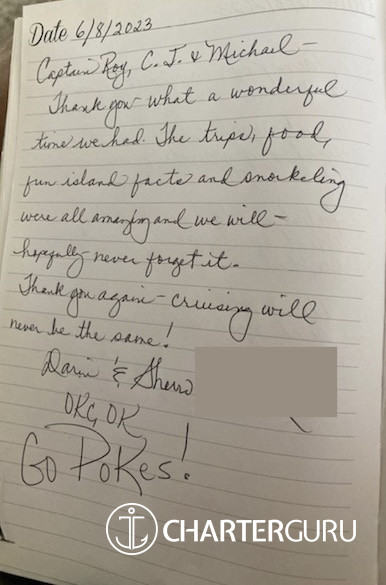 Date 6/8/2023
Captain Roy, C.J. & Michael –
Thank you – what a wonderful
time we had. The trips, food,
fun island facts and snorkeling
were all amazing and we will –
hopefully – never forget it.
Thank you again – cruising will
never be the same!
& 
OKC, OK
Go Pokes!
CHARTERGURU